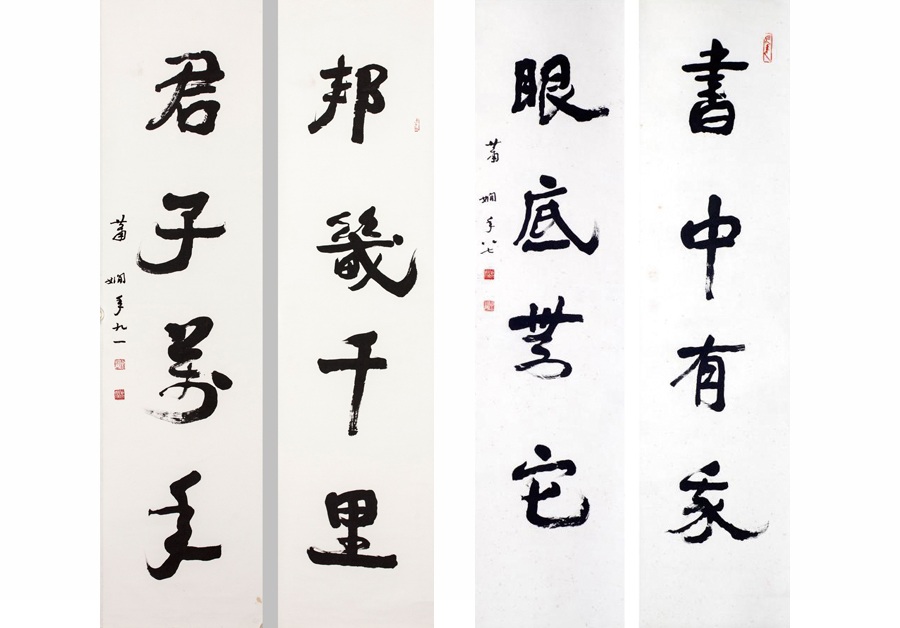 書中有我
眼底無它
蕭嫻年八七
邦畿千里
君子萬年
蕭嫻年九一